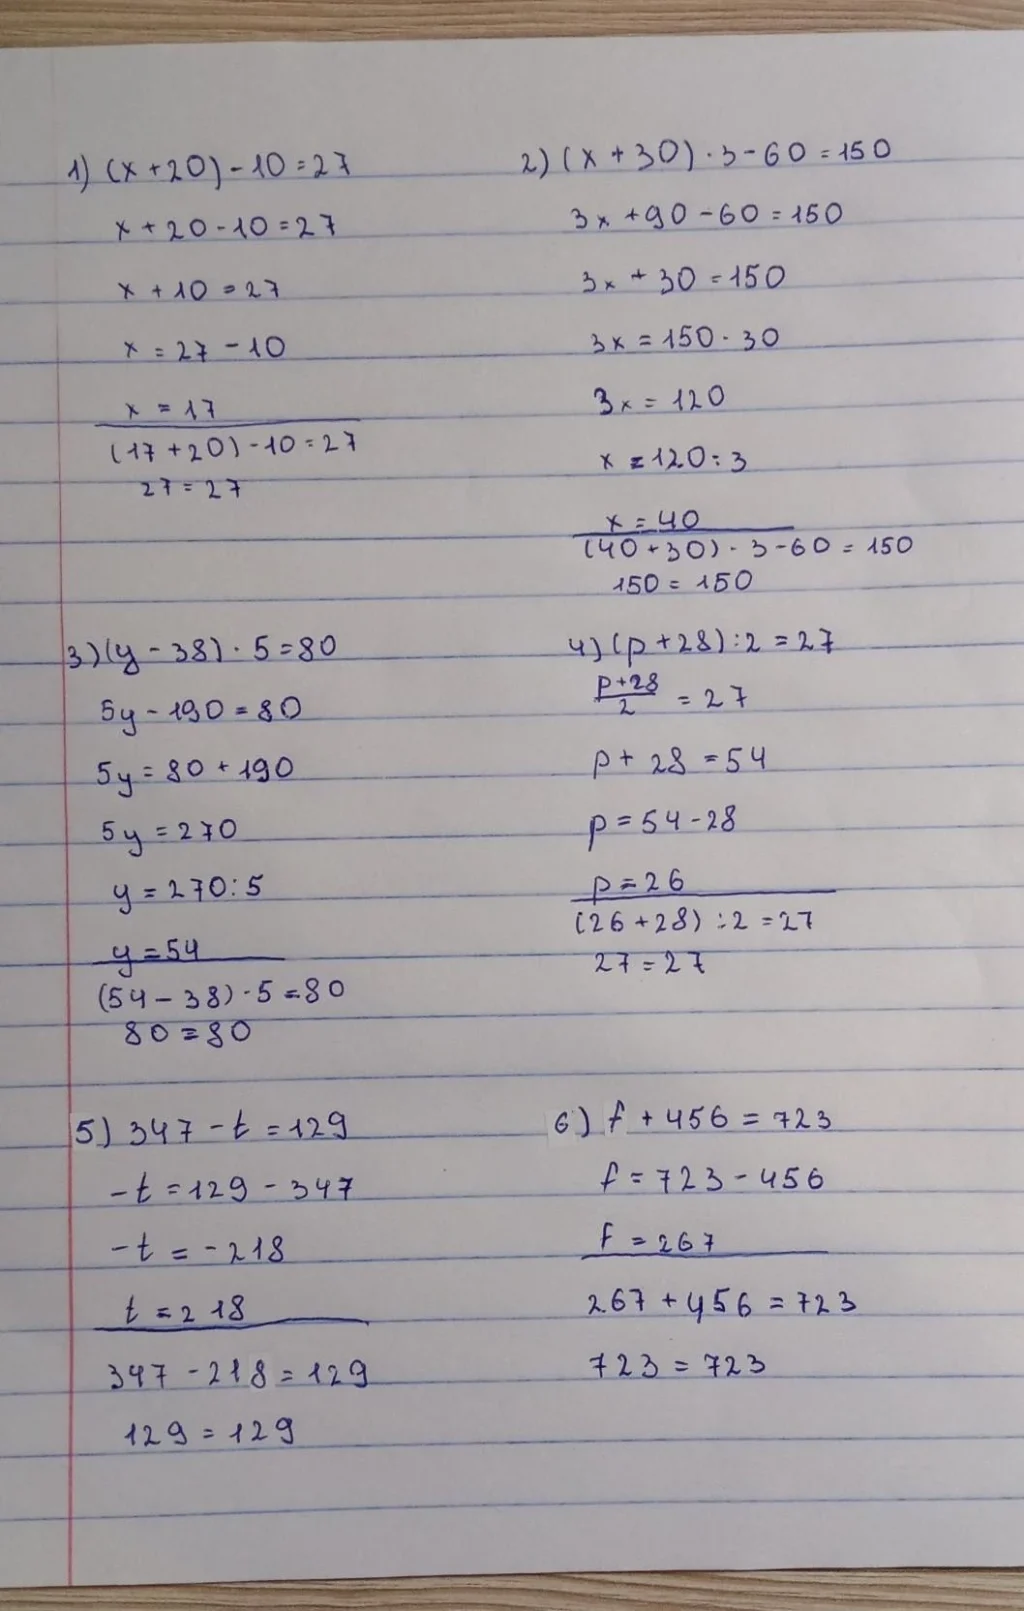 1) (x+20)-10=27
x+20-10=27
x+10=27
x=27-10
x=17
(17+20)-10=27
27=27
2) (x+30)·3-60=150
3x+90-60=150
3x+30=150
3x=150·30
3x=120
x=120:3
x=40
(40+30)·3-60=150
150=150
3) (y-38)·5=80
5y-190=80
5y=80+190
5y=270
y=270:5
y=54
(54-38)·5=80
80=80
4) (p+28):2=27
p+28/2=27
p+28=54
p=54-28
p=26
(26+28):2=27
27=27
5) 347-t=129
-t=129-347
-t=-218
t=218
347-218=129
129=129
6) f+456=723
f=723-456
f=267
267+456=723
723=723